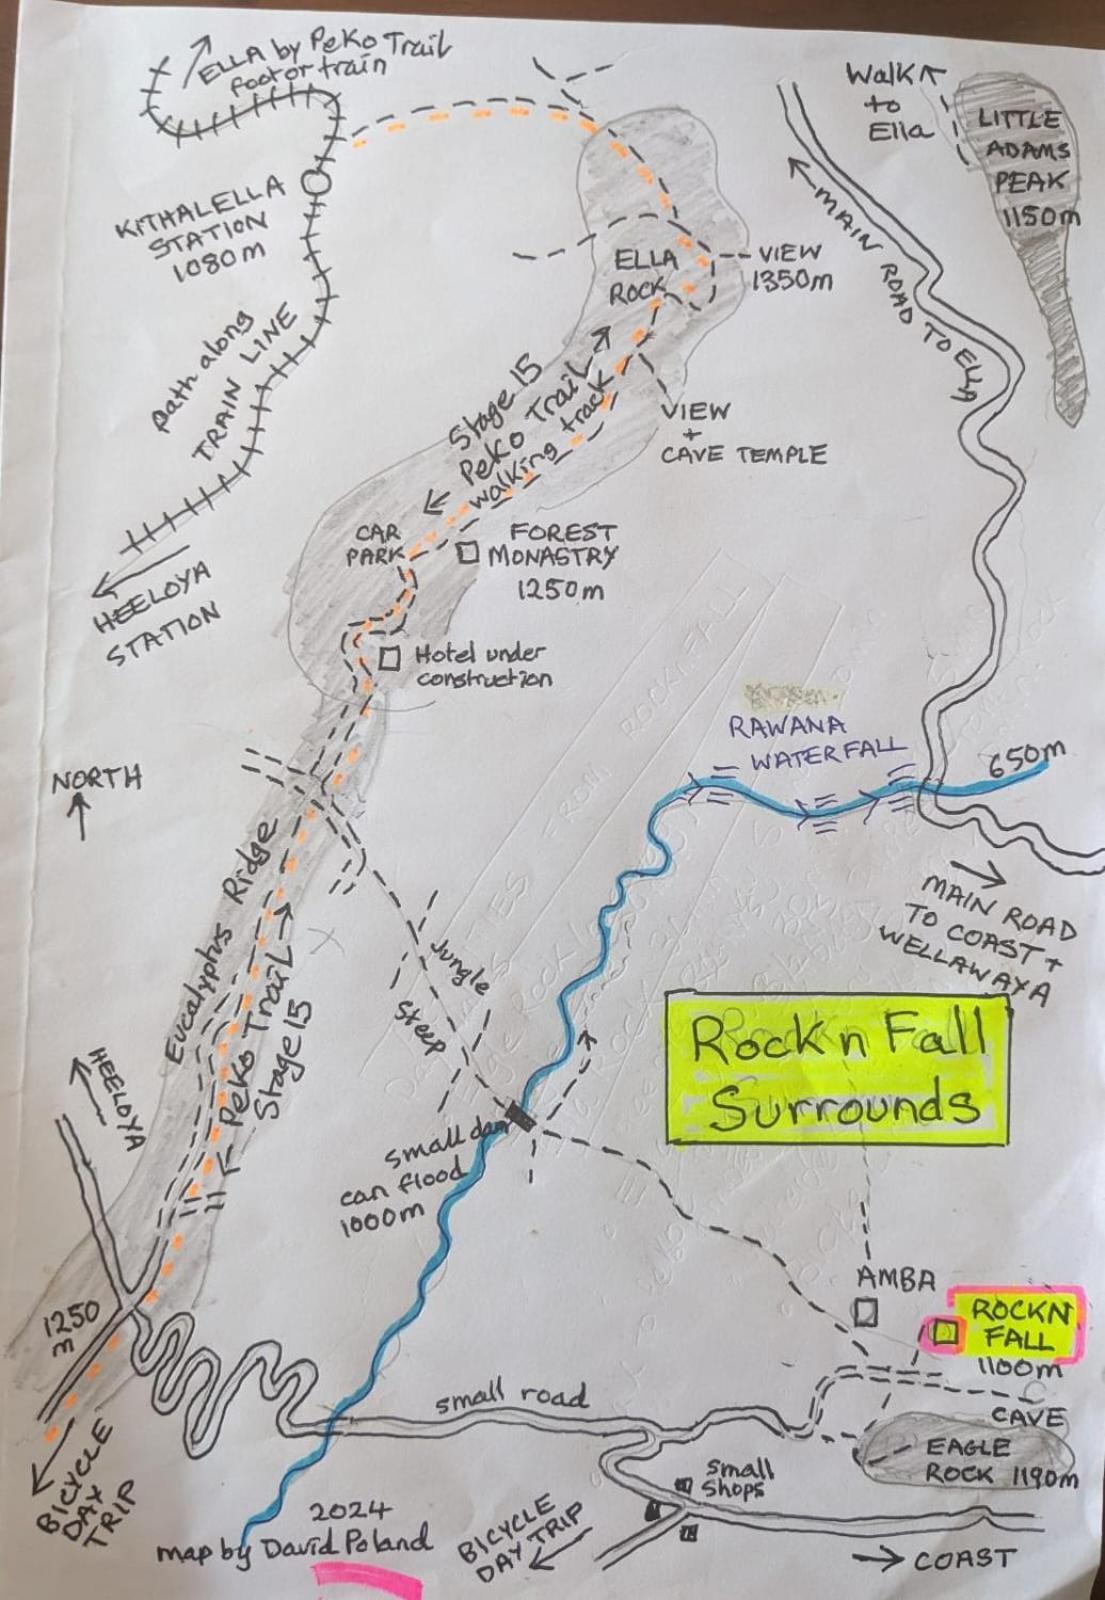 ELLA by Peko Trail
foot or train
Walk
to
Ella
LITTLE
ADAMS
PEAK
1150m
KITHALELLA
STATION
1080m
MAIN ROAD TO ELLA
ELLA
ROCK
VIEW
1350m
Path along
TRAIN LINE
Stage 15
Peko Trail
walking track
VIEW
+
CAVE TEMPLE
CAR
PARK
FOREST
MONASTRY
1250m
HEELOYA
STATION
Hotel under
construction
RAWANA
WATERFALL
650m
NORTH
Eucalyptus Ridge
Peko Trail
Stage 15
Jungle
Steep
MAIN ROAD
TO COAST +
WELLAWAYA
Rock n Fall
Surrounds
HEELOYA
small dam
can flood
1000m
AMBA
ROCKN
FALL
1100m
1250
m
small road
CAVE
EAGLE
ROCK 1190m
small
shops
BICYCLE
DAY
TRIP
2024
map by David Poland
BICYCLE
DAY TRIP
COAST